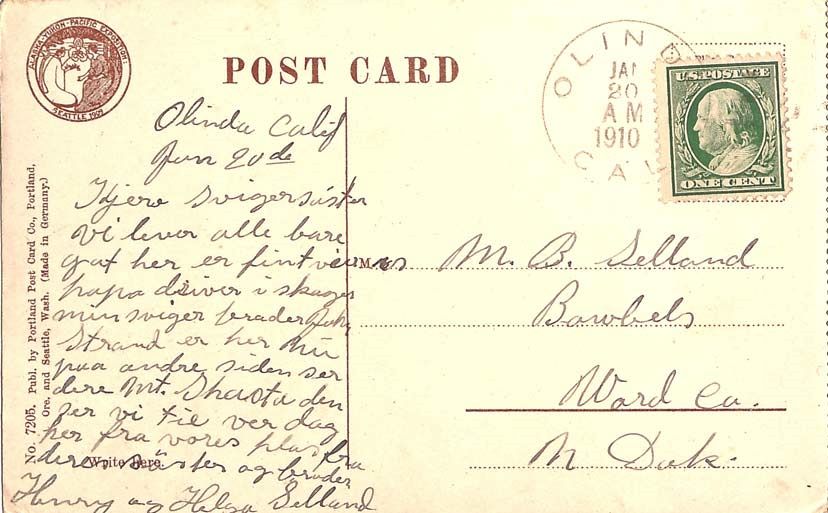 ALASKA-YUKON-PACIFIC EXPOSITION
SEATTLE 1909
POST CARD
OLINDA
CAL
JAN
20
A M
1910
U.S. POSTAGE
ONE CENT
No. 7205. Publ. by Portland Post Card Co., Portland,
Ore. and Seattle, Wash. (Made in Germany.)
Olinda Calif
Jan 20de
Kjere Svigersöster
vi lever alle bare
gat her er fint veir
papa driver i skogen
min sviger broder John
Strand er her nu
paa andre siden ser
dere Mt. Shasta den
ser vi ver dag
her fra vores plas fra
deres söster og broder
Henry og Helga Selland
Write Here.
M. B. Selland
Bowbels
Ward Co.
N Dak.